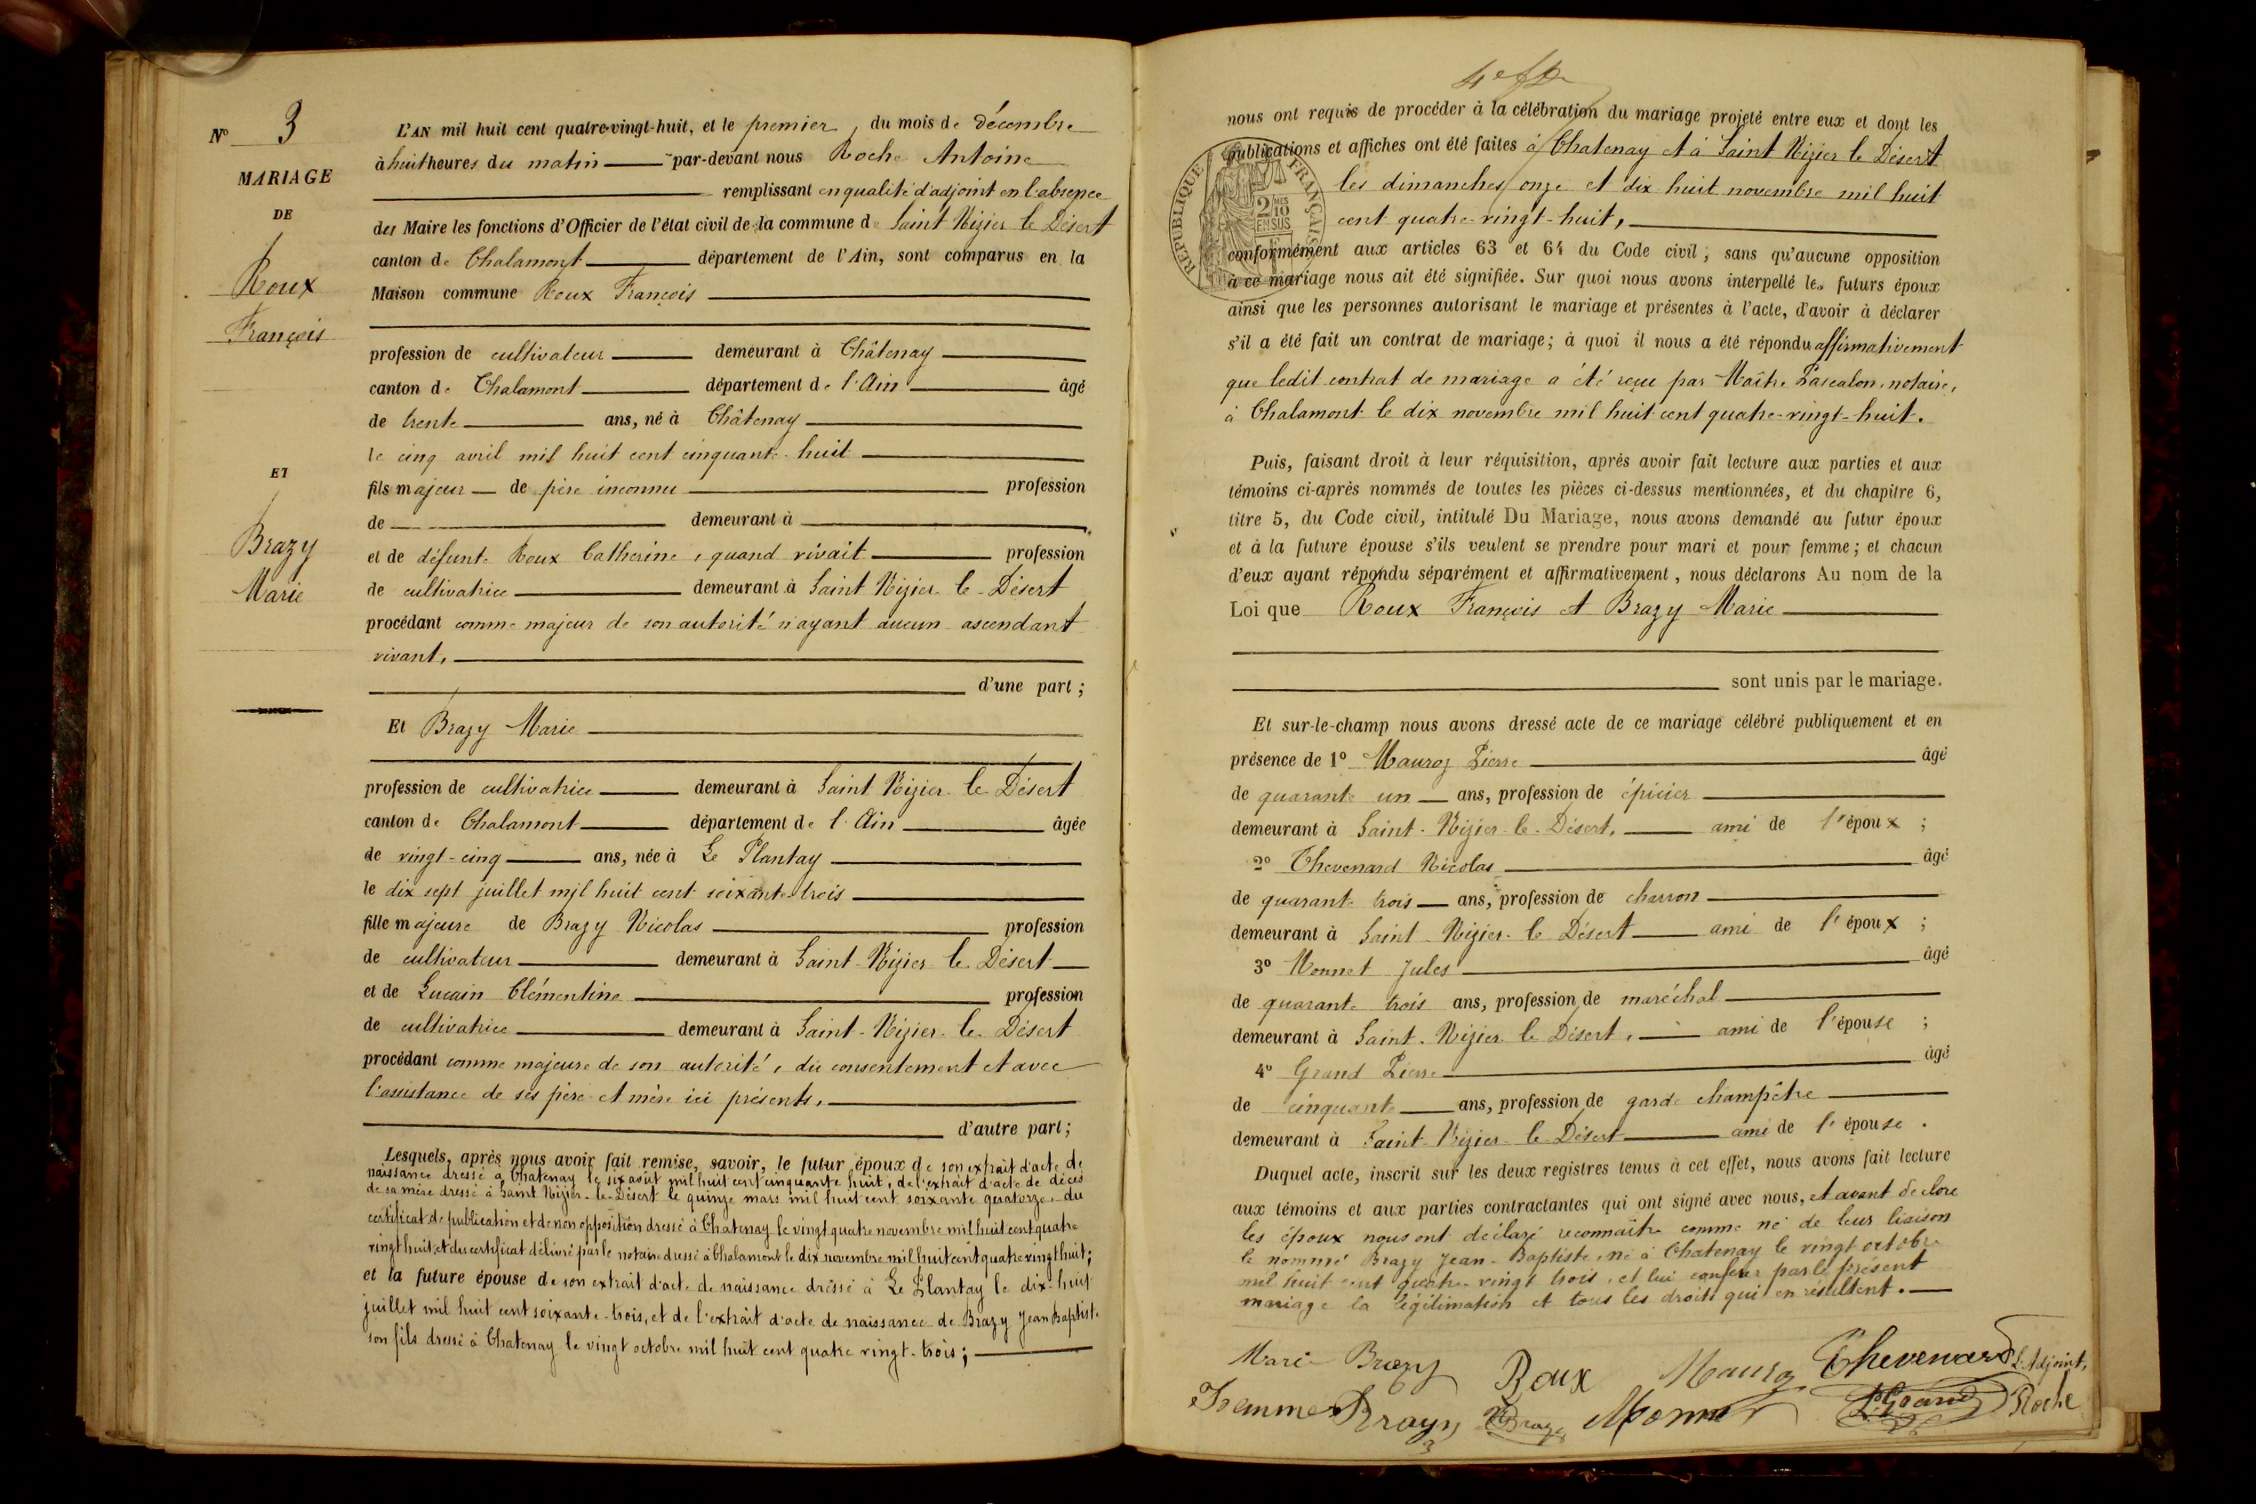 N° 3
MARIAGE
DE
Roux
François
ET
Brazy
Marie
L'AN mil huit cent quatre-vingt-huit, et le premier, du mois de décembre
à huit heures du matin par-devant nous Roche Antoine
remplissant en qualité d'adjoint en l'absence
du Maire les fonctions d'Officier de l'état civil de la commune de Saint Nizier le Désert
canton de Chalamont département de l'Ain, sont comparus en la
Maison commune Roux François
profession de cultivateur demeurant à Châtenay
canton de Chalamont département de l'Ain âgé
de trente ans, né à Châtenay
le cinq avril mil huit cent cinquante-huit
fils majeur de père inconnu profession
de demeurant à
et de défunte Roux Catherine, quand vivait profession
de cultivatrice demeurant à Saint Nizier-le-Désert
procédant comme majeur de son autorité n'ayant aucun ascendant
vivant,
d'une part;
Et Brazy Marie
profession de cultivatrice demeurant à Saint Nizier-le-Désert
canton de Chalamont département de l'Ain âgée
de vingt-cinq ans, née à Le Plantay
le dix sept juillet mil huit cent soixante-trois
fille majeure de Brazy Nicolas profession
de cultivateur demeurant à Saint-Nizier-le-Désert
et de Lucain Clémentine profession
de cultivatrice demeurant à Saint-Nizier-le-Désert
procédant comme majeure de son autorité, du consentement et avec
l'assistance de ses père et mère ici présents,
d'autre part;
Lesquels, après nous avoir fait remise, savoir, le futur époux de son extrait d'acte de
naissance dressé à Chatenay le six août mil huit cent cinquante huit, de l'extrait d'acte de décès
de sa mère dressé à Saint Nizier-le-Désert le quinze mars mil huit cent soixante quatorze, du
certificat de publication et de non opposition dressé à Chatenay le vingt quatre novembre mil huit cent quatre
vingt huit, et du certificat délivré par le notaire dressé à Chalamont le dix novembre mil huit cent quatre vingt huit;
et la future épouse de son extrait d'acte de naissance dressé à Le Plantay le dix-huit
juillet mil huit cent soixante-trois, et de l'extrait d'acte de naissance de Brazy Jean Baptiste
son fils dressé à Chatenay le vingt octobre mil huit cent quatre vingt-trois;
nous ont requis de procéder à la célébration du mariage projeté entre eux et dont les
publications et affiches ont été faites à Chatenay et à Saint Nizier le Désert
les dimanches onze et dix huit novembre mil huit
cent quatre-vingt-huit,
RÉPUBLIQUE FRANÇAISE
2/10
EN SUS
conformément aux articles 63 et 64 du Code civil; sans qu'aucune opposition
à ce mariage nous ait été signifiée. Sur quoi nous avons interpellé les futurs époux
ainsi que les personnes autorisant le mariage et présentes à l'acte, d'avoir à déclarer
s'il a été fait un contrat de mariage; à quoi il nous a été répondu affirmativement
que ledit contrat de mariage a été reçu par Maître Pascalon, notaire,
à Chalamont le dix novembre mil huit cent quatre-vingt-huit.
Puis, faisant droit à leur réquisition, après avoir fait lecture aux parties et aux
témoins ci-après nommés de toutes les pièces ci-dessus mentionnées, et du chapitre 6,
titre 5, du Code civil, intitulé Du Mariage, nous avons demandé au futur époux
et à la future épouse s'ils veulent se prendre pour mari et pour femme; et chacun
d'eux ayant répondu séparément et affirmativement, nous déclarons Au nom de la
Loi que Roux François et Brazy Marie
sont unis par le mariage.
Et sur-le-champ nous avons dressé acte de ce mariage célébré publiquement et en
présence de 1° Mauroz Pierre âgé
de quarante un ans, profession de épicier
demeurant à Saint-Nizier-le-Désert, ami de l'époux;
2° Thevenard Nicolas âgé
de quarante trois ans, profession de charron
demeurant à Saint-Nizier-le Désert ami de l'époux;
3° Monnet Jules âgé
de quarante trois ans, profession de maréchal
demeurant à Saint-Nizier le Désert, ami de l'épouse;
4° Grand Pierre âgé
de cinquante ans, profession de garde champêtre
demeurant à Saint-Nizier-le-Désert ami de l'épouse.
Duquel acte, inscrit sur les deux registres tenus à cet effet, nous avons fait lecture
aux témoins et aux parties contractantes qui ont signé avec nous, et avant de clore
les époux nous ont déclaré reconnaître comme né de leur liaison
le nommé Brazy Jean-Baptiste, né à Chatenay le vingt octobre
mil huit cent quatre-vingt trois, et lui conférer par le présent
mariage la légitimation et tous les droits qui en résultent.
Marie Brazy Roux Mauroz Thevenard L'Adjoint,
Brazy Monnet Grand Roche